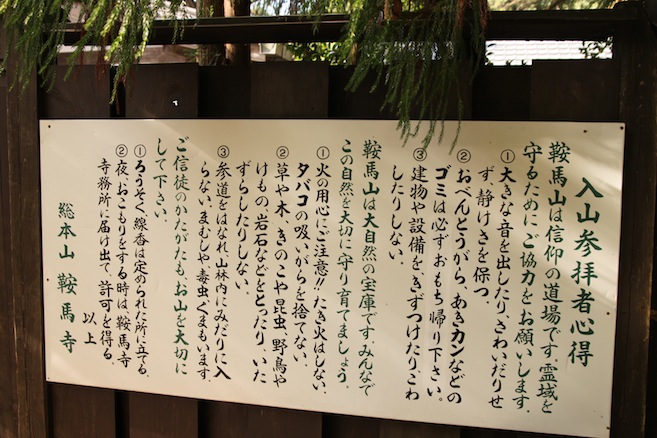 入山参拝者心得
鞍馬山は信仰の道場です。霊域を
守るためにご協力をお願いします。
①大きな音を出したり、さわいだりせ
ず、静けさを保つ。
②おべんとうがら、あきカンなどの
ゴミは必ずおもち帰り下さい。
③建物や設備を、きずつけたりこわ
したりしない。
鞍馬山は大自然の宝庫です。みんなで
この自然を大切に守り育てましょう。
①火の用心にご注意!!たき火はしない。
タバコの吸いがらを捨てない。
②草や木、きのこや昆虫、野鳥や
けもの岩石などをとったり、いた
ずらしたりしない。
③参道をはなれ山林内にみだりに入
らない。まむしや毒虫、くまもいます。
ご信徒のかたがたも、お山を大切に
して下さい。
①ろうそく、線香は定められた所に立てる。
②夜、おこもりをする時は、鞍馬寺
寺務所に届け出て、許可を得る。
以上
総本山 鞍馬寺